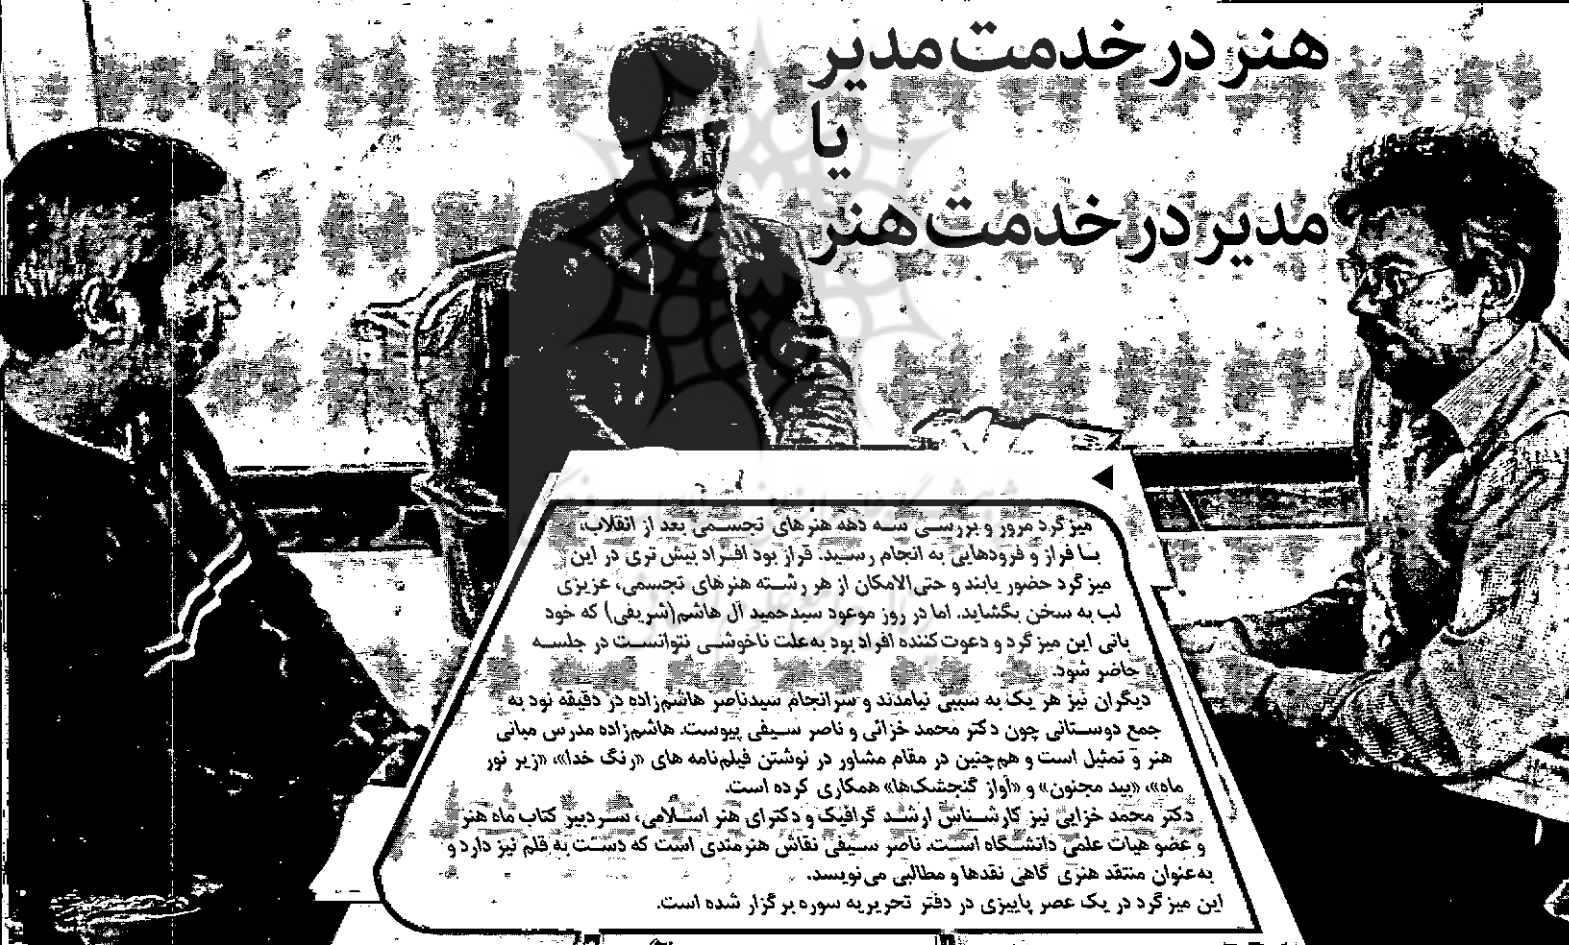 هنر در خدمت مدیر
یا
مدیر در خدمت هنر
میزگرد مرور و بررسی سه دهه هنرهای تجسمی بعد از انقلاب،
با فراز و فرودهایی به انجام رسید. قرار بود افراد بیش تری در این
میزگرد حضور یابند و حتی‌الامکان از هر رشته هنرهای تجسمی، عزیزی
لب به سخن بگشاید. اما در روز موعود سیدحمید آل هاشم(شریفی) که خود
بانی این میزگرد و دعوت‌کننده افراد بود به‌علت ناخوشی نتوانست در جلسه
حاضر شود.
دیگران نیز هر یک به سببی نیامدند و سرانجام سیدناصر هاشم‌زاده در دقیقه نود به
جمع دوستانی چون دکتر محمد خزائی و ناصر سیفی پیوست. هاشم‌زاده مدرس مبانی
هنر و تمثیل است و هم‌چنین در مقام مشاور در نوشتن فیلم‌نامه های «رنگ خدا»، «زیر نور
ماه»، «بید مجنون» و «آواز گنجشک‌ها» همکاری کرده است.
دکتر محمد خزایی نیز کارشناس ارشد گرافیک و دکترای هنر اسلامی، سردبیر کتاب ماه هنر
و عضو هیات علمی دانشگاه است. ناصر سیفی نقاش هنرمندی است که دست به قلم نیز دارد و
به‌عنوان منتقد هنری گاهی نقدها و مطالبی می‌نویسد.
این میزگرد در یک عصر پاییزی در دفتر تحریریه سوره برگزار شده است.